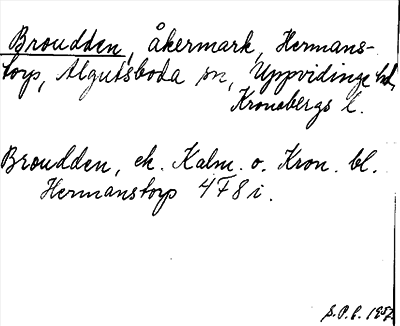 Broudden, åkermark, Hermans-
torp, Algutsboda sn, Uppvidinge hd,
Kronobergs l.
Broudden, ek. Kalm. o. Kron. bl.
Hermanstorp 4F8i.
S.P.B. 1952